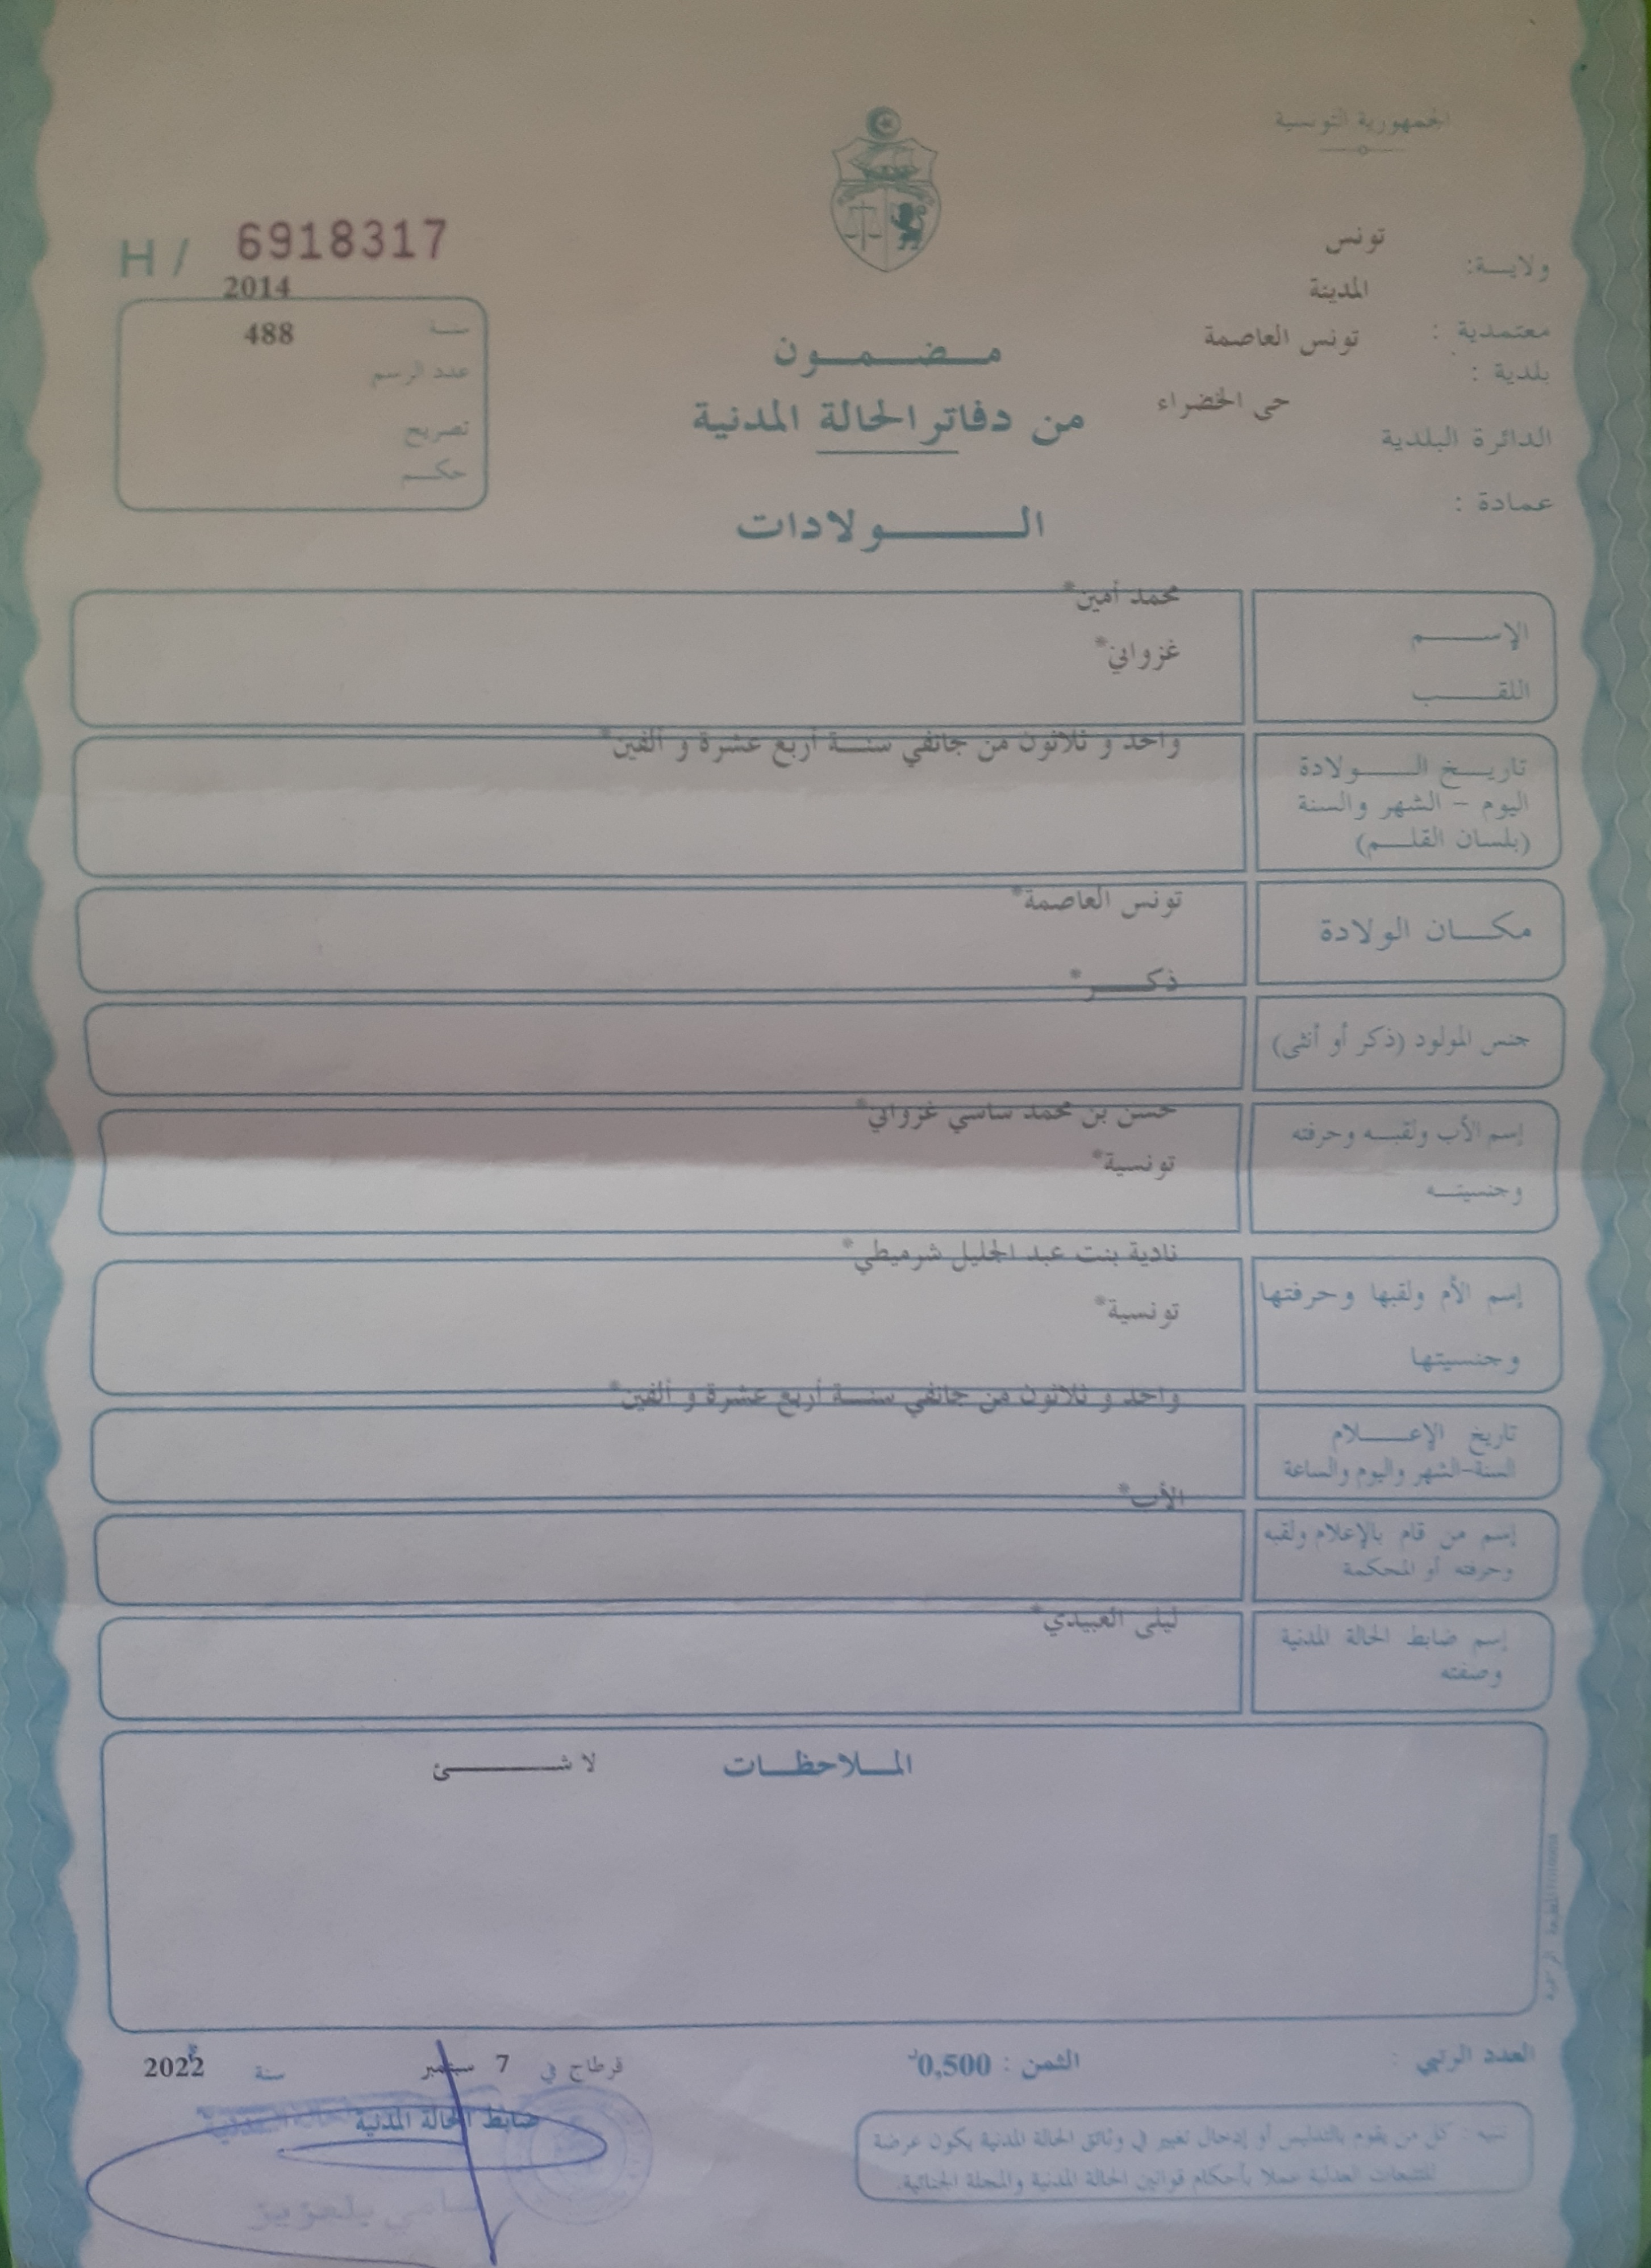 الجمهورية التونسية
ولايــة:
تونس
المدينة
معتمدية :
تونس العاصمة
بلدية :
حى الخضراء
الدائرة البلدية
عمادة :
H / 6918317
2014
سنة
488
عدد الرسم
تصريح
حكــم
مـضـمـون
من دفاتر الحالة المدنية
الـــولادات
الإســـم
محمد أمين*
اللقـــب
غزواني*
تاريــخ الـــولادة
اليوم – الشهر والسنة
(بلسان القلــم)
واحد و ثلاثون من جانفي سنــة أربع عشرة و ألفين*
مكـــان الولادة
تونس العاصمة*
جنس المولود (ذكر أو أنثى)
ذكــــر*
إسم الأب ولقبــه وحرفته
وجنسيتــه
حسن بن محمد ساسي غزواني*
تونسية*
إسم الأم ولقبها وحرفتها
وجنسيتها
نادية بنت عبد الجليل شرميطي*
تونسية*
تاريخ الإعـــلام
السنة-الشهر واليوم والساعة
واحد و ثلاثون من جانفي سنــة أربع عشرة و ألفين*
إسم من قام بالإعلام ولقبه
وحرفته أو المحكمة
الأب*
إسم ضابط الحالة المدنية
وصفته
ليلى العبيدي*
المــلاحظــات
لا شـــــئ
العدد الرتبي :
الثمن : 0,500د
قرطاج في 7 سبتمبر سنة 2022
ضابط الحالة المدنية
تنبيه : كل من يقوم بالتدليس أو إدخال تغيير في وثائق الحالة المدنية يكون عرضة
للتتبعات العدلية عملا بأحكام قوانين الحالة المدنية والمجلة الجنائية.
سامي بلعزيز